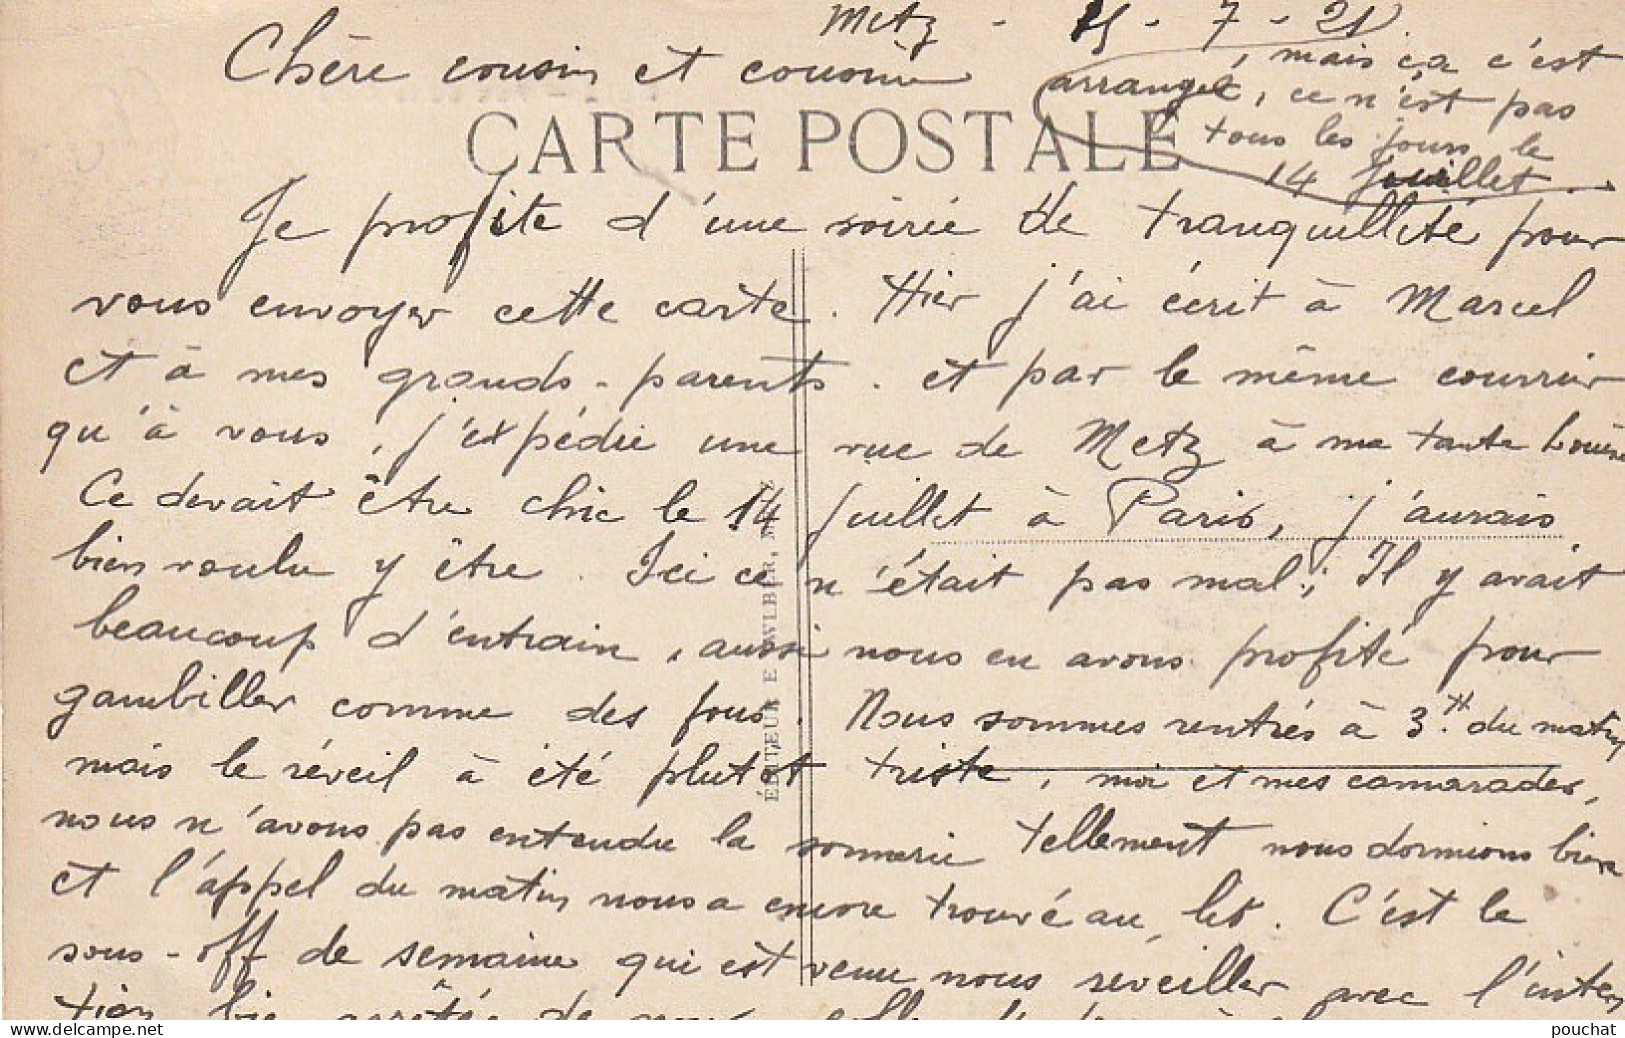 Metz - 15 - 7 - 21
Chère cousin et cousine
CARTE POSTALE
Je profite d'une soirée de tranquillité pour
vous envoyer cette carte. Hier j'ai écrit à Marcel
et à mes grands-parents. et par le même courrier
qu'à vous, j'expédie une vue de Metz à ma tante
Ce devait être chic le 14 juillet à Paris, j'aurais
bien voulu y être. Ici ce n'était pas mal; Il y avait
beaucoup d'entrain, aussi nous en avons profité pour
gambiller comme des fous. Nous sommes rentrés à 3H. du matin
mais le réveil à été plutot triste, moi et mes camarades,
nous n'avons pas entendu la sonnerie tellement nous dormions bien
et l'appel du matin nous a encore trouvé au lit. C'est le
sous-off de semaine qui est venu nous réveiller avec l'inten
tion bien arrêtée de nous coller
, mais ça c'est
arrangé, ce n'est pas
tous les jours le
14 juillet.
ÉDITEUR E.
pouchat